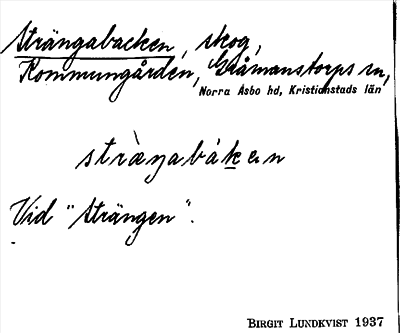 Strängabacken, skog,
Kommungården, Gråmanstorps sn,
Norra Åsbo hd, Kristianstads län
stràŋabákɛn
Vid "Strängen".
BIRGIT LUNDKVIST 1937